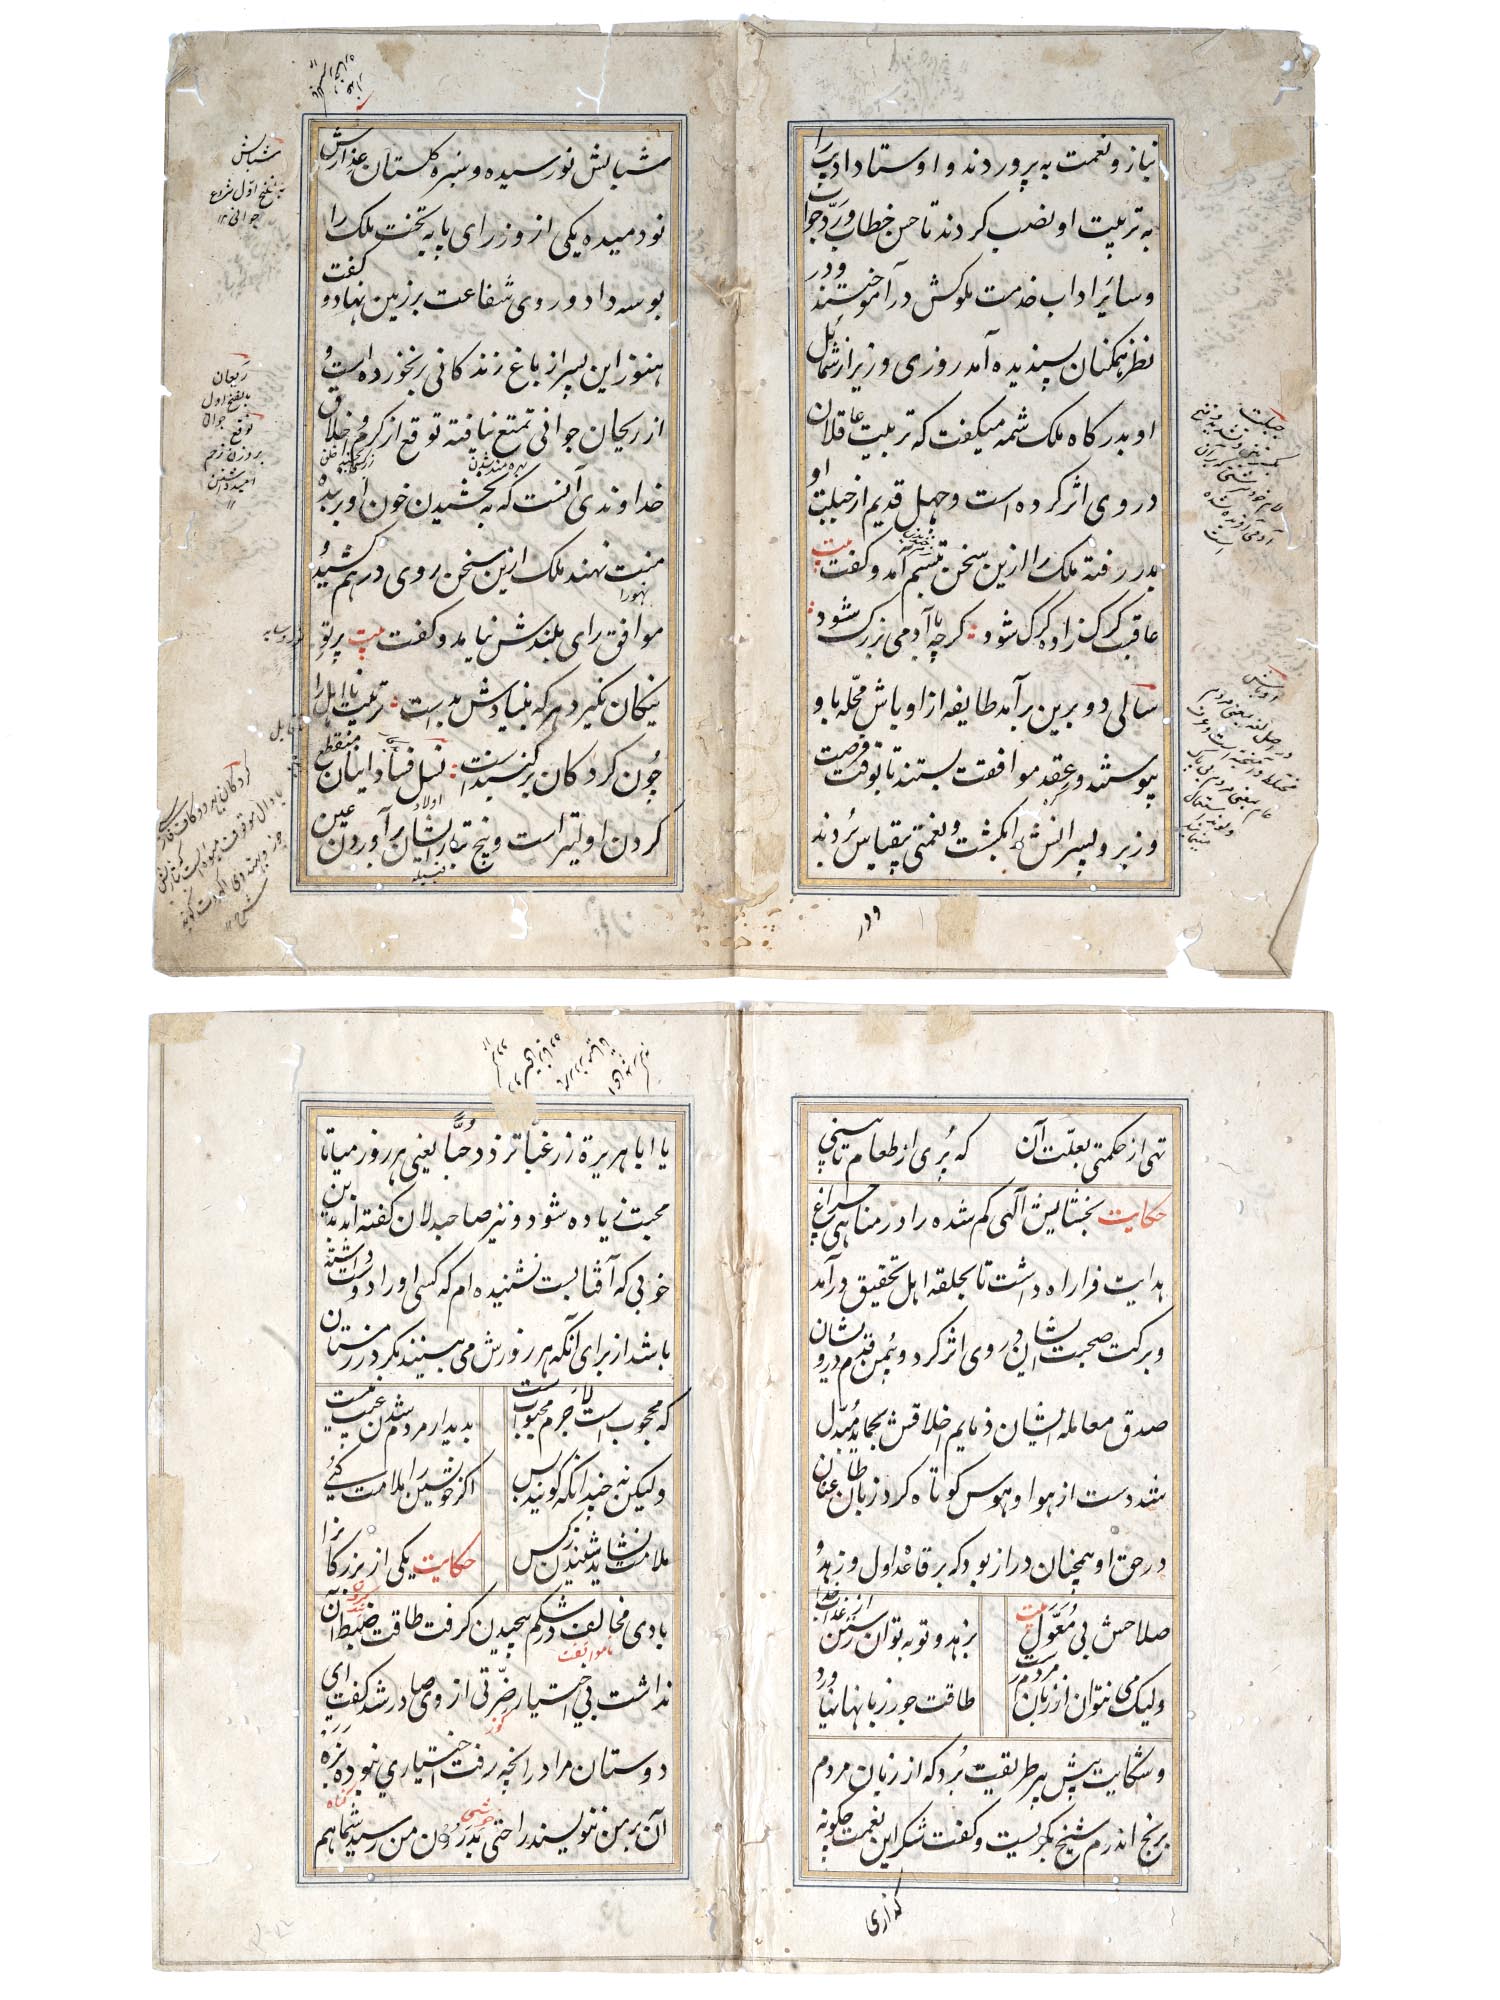 نیاز و نعمت به پروردند و اوستاد ادیب را
به تربیت او نصب کردند تا حسن خطاب و ردّ جواب
و سائر اداب خدمت ملوکش در آموختند و در
نظر همکنان پسندیده آمد روزی وزیر از شمائل
او بدرکاه ملک شمه میکفت که تربیت عاقلان
در وی اثر کرده است و جهل قدیم از جبلت او
بدر رفته ملک را ازین سخن تبسم آمد و کفت بیت
عاقبت کرک زاده کرک شود کرچه با آدمی بزرک شود
سالی دو برین برآمد طایفه از اوباش محله با و
پیوستند و عقد موافقت بستند تا بوقت فرصت
وزیر و پسرانش را بکشت و نعمتی بقیاس بردند
ودر
شبابش نو رسیده و سبزه کلستان عذارش
نودمیده یکی از وزرای پایه تخت ملک را
بوسه داد و روی شفاعت بر زمین نهاد و کفت
هنوز این پسر از باغ زندکانی بر نخورده است و
از ریعان جوانی تمتع نیافته توقع از کرم و اخلاق
بهره مند شدن
خداوندی آنست که به بخشیدن خون او بر بنده
منت نهند ملک ازین سخن روی در هم کشید و
موافق رای بلندش نیامد و کفت بیت پرتو
نیکان نکیرد هر که بنیادش بد است تربیت نااهل را
چون کردکان بر کنبد است نسل فساد اینان منقطع
کردن اولیتر است و بیخ تبار ایشان بر آوردن عین
اولاد
قبیله
شبابش
به فتح اول شروع
جوانی ۱۲
ریعان
بالفتح اول
جوانی
توقع
امید داشتن
تهی از حکمتی بعلّت آن که پُری از طعام تا بینی
حکایت بخشایش الهی کم شده را در مناهی چراغ
هدایت فرا راه داشت تا بحلقه اهل تحقیق در آمد
و برکت صحبت ایشان در وی اثر کرد و بیمن قدم درویشان
صدق معامله ایشان ذمایم اخلاقش بحماید مبدل
شد دست از هوا و هوس کوتاه کرد زبان طاعنان
در حق او همچنان دراز بود که بر قاعده اول و زهد و
صلاحش بی معوّل بیت بزهد و توبه توان رستن از عذاب خدا
ولیک می نتوان از زبان مردم رست طاقت جور زبانها نیاورد
و شکایت پیش پیر طریقت بُرد که از زبان مردم
برنج اندرم شیخ بکریست و کفت شکر این نعمت چکونه
کذاری
یا ابا هریرة زر غبّا تزدد حُبّا یعنی هر روز میا تا
محبت زیاده شود و نیز صاحبدلان کفته اند بدین
خوبی که آفتابست نشنیده ام که کسی او را دوست داشته
باشد از برای آنکه هر روزش می بینند مکر در زمستان
که محجوب است لاجرم محبوب است بدیدار مردم شدن عیب نیست
ولیکن نه چندانکه کویند بس اکر خویشتن را ملامت کنی
ملامت نشاید شنیدن ز کس حکایت یکی از بزرکان را
بادی مخالف در شکم پیچیدن کرفت طاقت ضبط آن
ناموافقت
نداشت بی اختیار ضرتی از وی صادر شد کفت ای
کوز
دوستان مرا در انچه رفت اختیاری نبود و بزه
کناه
آن بر من ننویسند و راحتی بدرون من رسید شما هم
خوشی